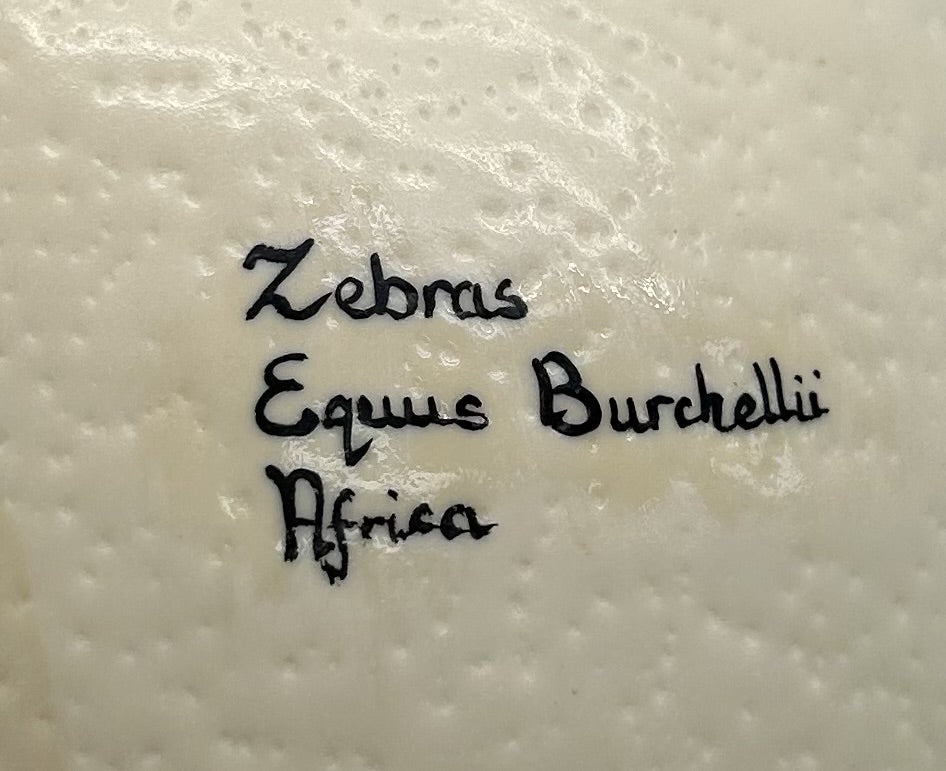 Zebras
Equus Burchellii
Africa